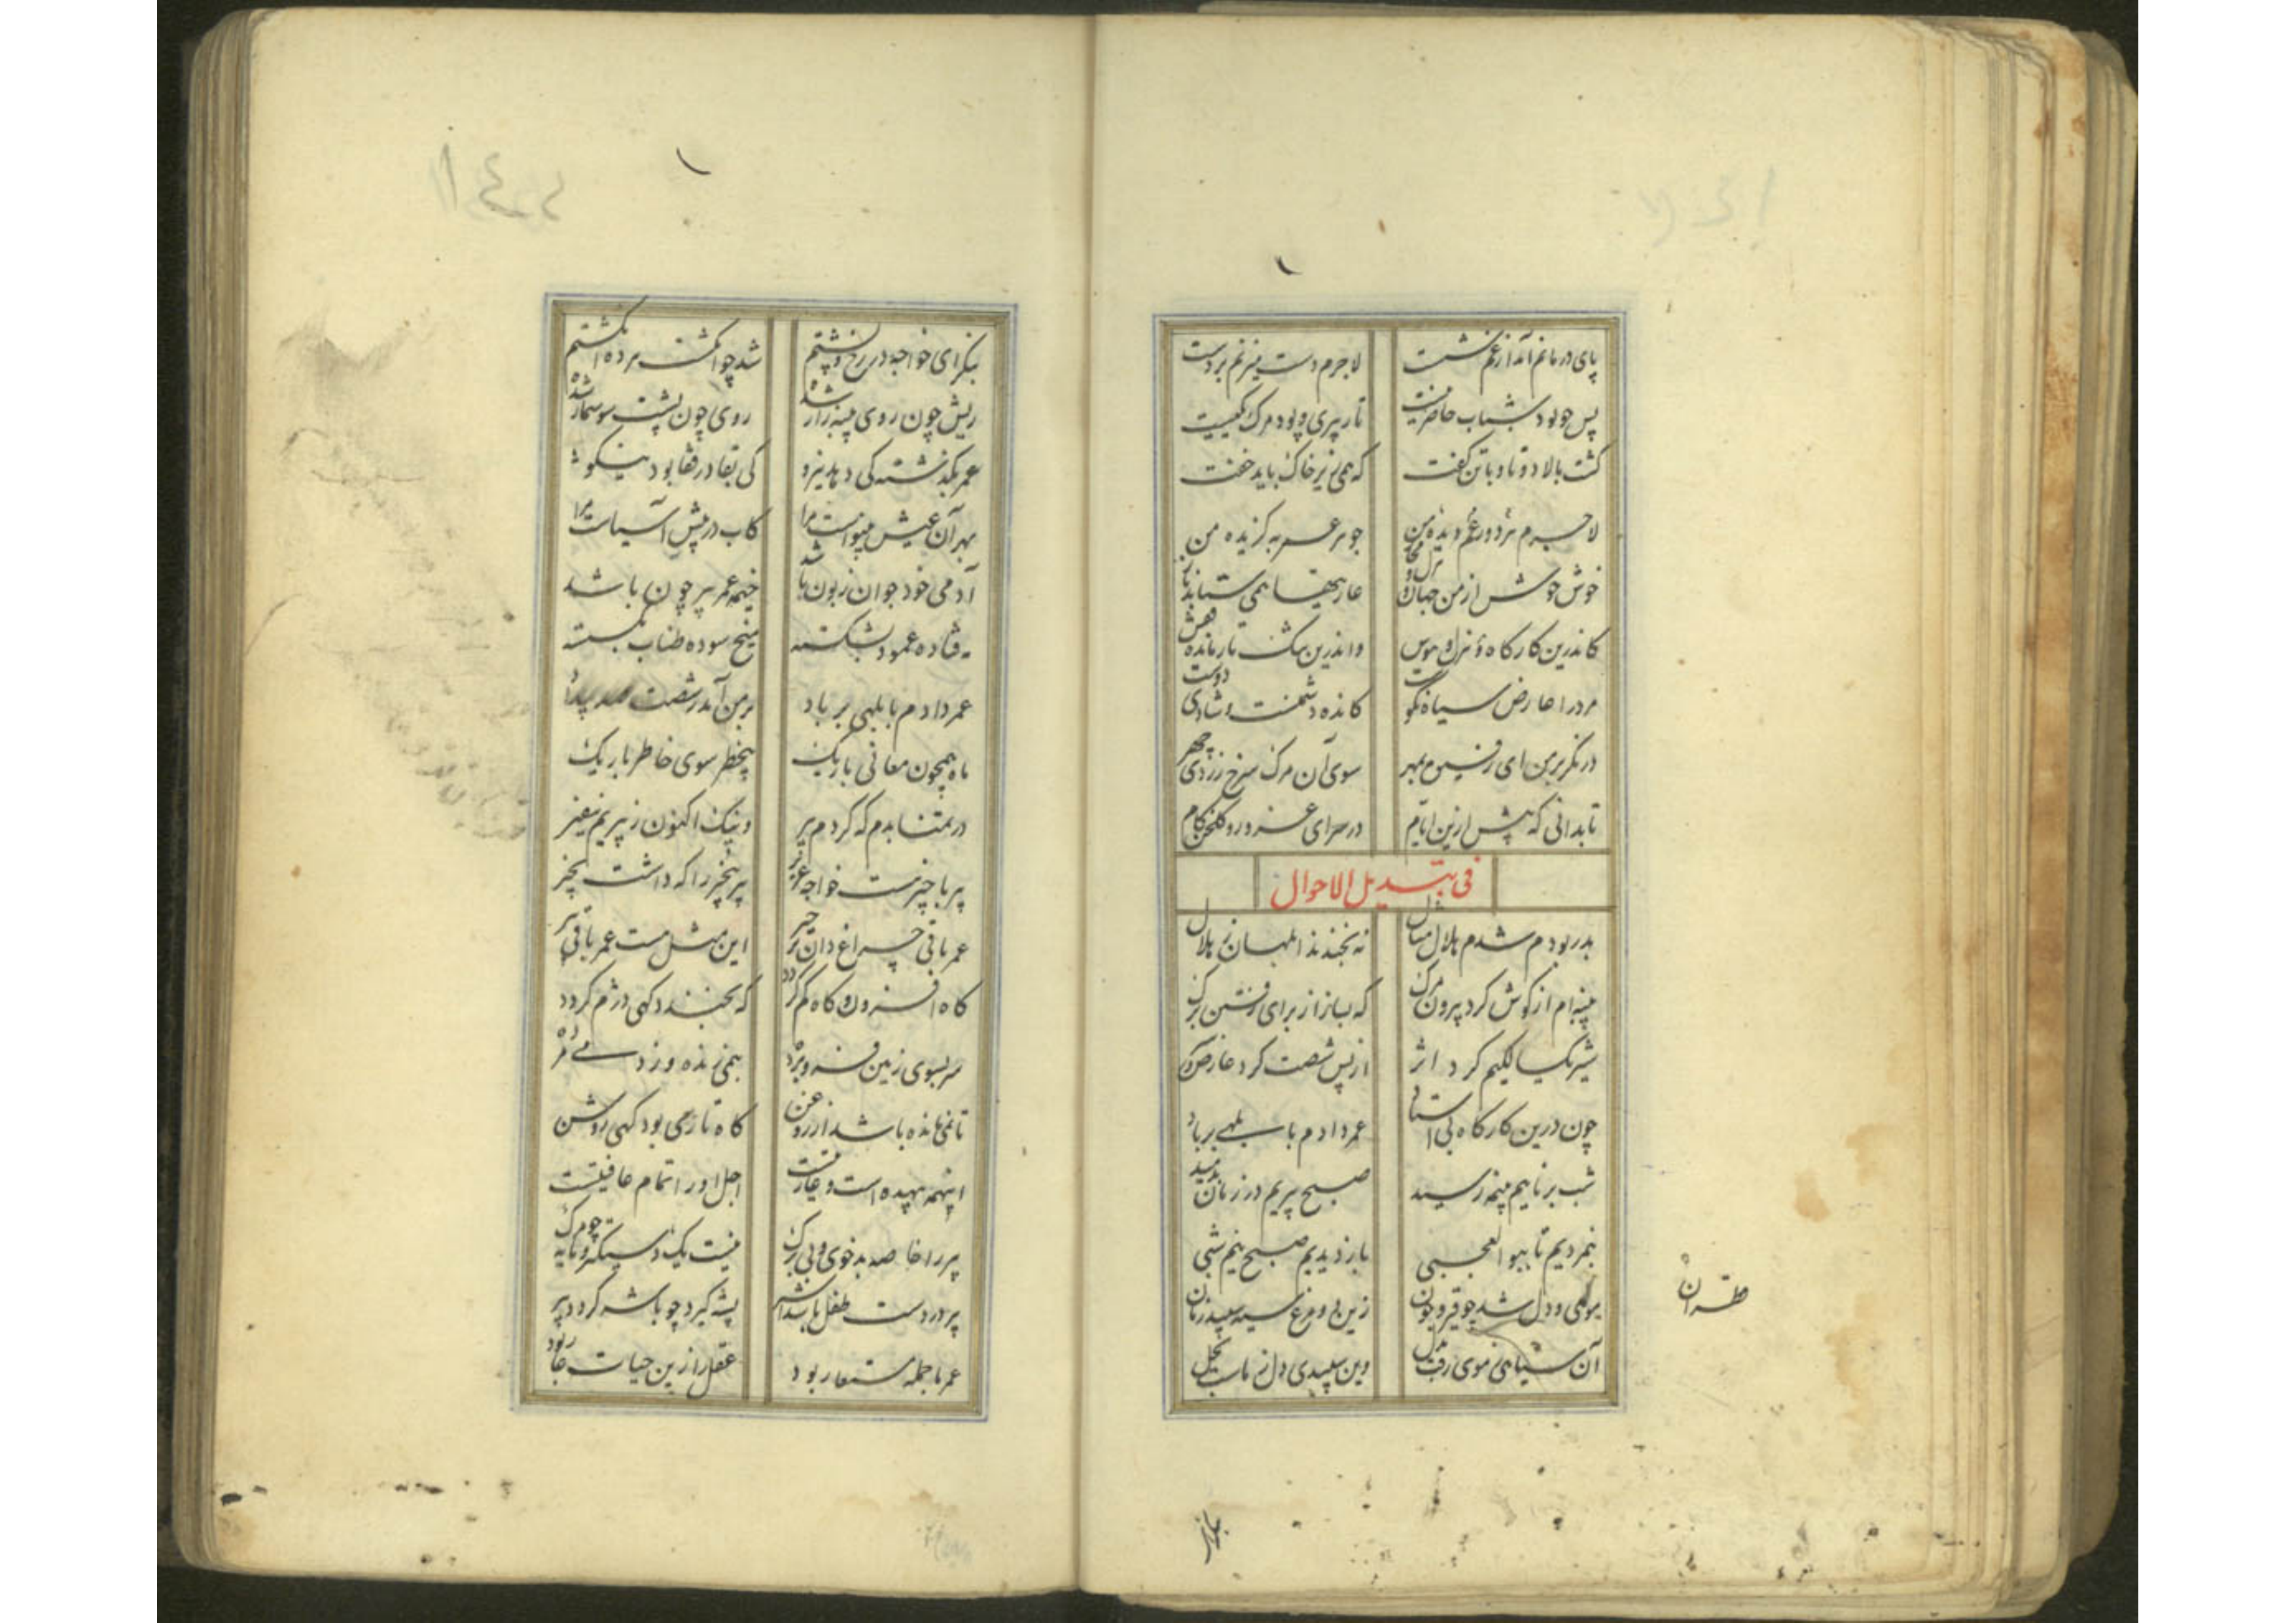 پای در ماتم آمد از غم شست لاجرم دست میزنم بر دست
پس چو بود شباب حاضر نیست تار پیری و پود مرگ یکیست
گشت بالا دوتا و با تن گفت که همی زیر خاک باید خفت
لاجرم شد ز غم دو دیده من جوهر عمر به گزیده من
خوش خوش از من جهان عاریتها همی ستاند باز
کاندرین کارگاه هزل و هوس واندرین
مرد را عارض سیاه نکوست کانده دشمنست و شادی دوست
در نگر بر من ای رفیق بمهر سوی آن مرگ سرخ زردی چهر
تا بدانی که پیش ازین ایام در سرای غرور و گلخن کام
فی تبدیل الاحوال
بدر بودم شدم هلال مثال نه بخندند ابلهان ز هلال
پنبه‌ام از گوش کرد بیرون مرگ که بساز از برای رفتن برگ
شیر یکسالگیم کرد اثر از پس شصت کرد عارض
چون درین کارگاه بی استاد عمر دادم بابلهی بر باد
شب برناییم بنیمه رسید صبح پیریم در زمان بدمید
بنمردیم تا ببوالعجبی باز دیدیم صبح نیم شبی
موی و دل شد چو قیر و چون زین دو مرغ سیه سپید زمان
آن سیاهی ز موی رفت بدل وین سپیدی دل ز ماست بخیل
طهران
بنگر ای خواجه در رخ و پشتم شد چو انگشت مرده انگشتم
ریش چون روی پنبه زار شده روی چون پشت سوسمار شده
عمر بگذشته کی دهد نیرو کی بقا در قفا بود نیکو
بهر آن عیش بینواست مرا کآب در پیش آسیاست مرا
آدمی خود جوان زبون باشد خیمه عمر پیر چون باشد
فتاده عمود بشکسته میخ سوده طناب بگسسته
عمر دادم بابلهی بر باد بر من آمد ز شصت صد بیداد
ماه همچون معانی باریک بیخطر سوی خاطر تاریک
در تمنا بدم که گردم پیر وینک اکنون ز پیریم بنفیر
پیر با چیز هست خواجه عزیز پیر بی‌چیز را که داشت بچیز
عمر باقی چراغ دان بر خیر این مثل هست عمر باقی پیر
گاه افزون و گاه کم گردد که بخندد گهی دژم گردد
سر بسوی زمین فرو برده نیمی زنده و نیمی مرده
تا نمی مانده باشد از روغن گاه تاری بود گهی روشن
اینهمه بیهده است و عاریتست اجل او را تمام عافیتست
پیر را خاصه بدخوی و بی برگ نیست یک دستگیر و مایه چو مرگ
پیر در دست طفل باشد اسیر پشه گیرد چو باشه گردد پیر
عمر ما جمله مستعار بود عقل را زین حیات عار بود